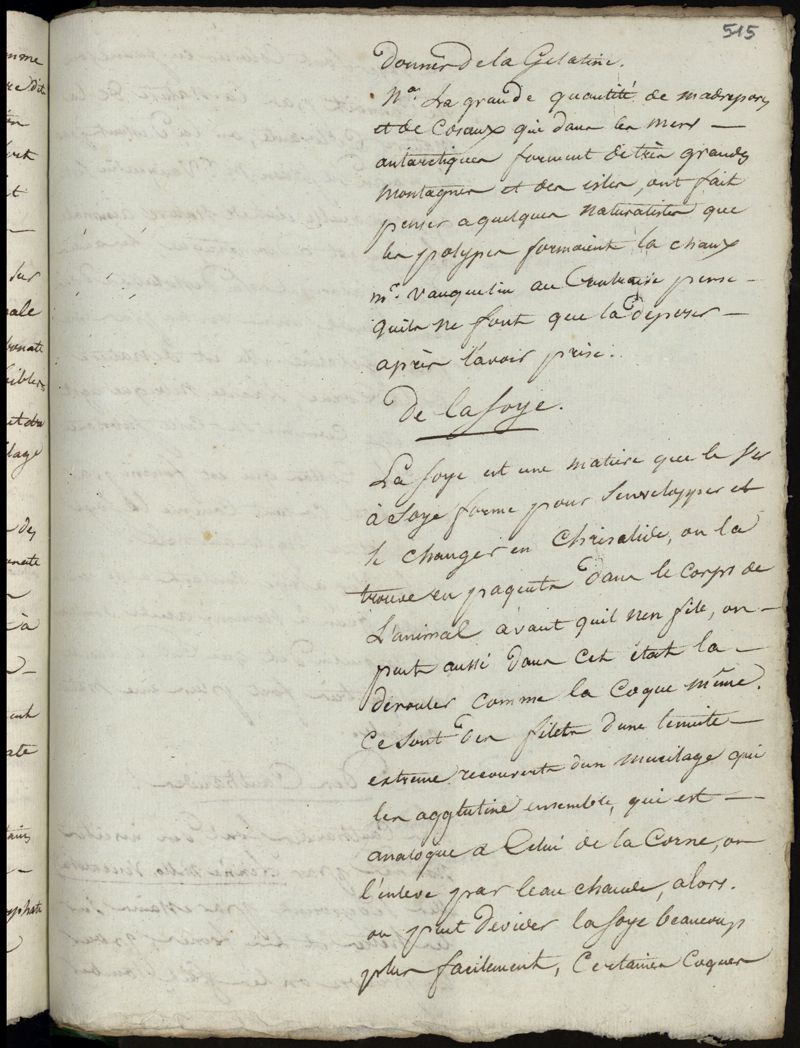 515
donner de la Gelatine.
Na. La grande quantité de madrepores
et de Coraux qui dans les mers —
antarctiques forment de très grandes
montagnes et des isles, ont fait
penser a quelques naturalistes que
les polypes formoient la chaux
mr. Vauquelin au Contraire pense —
quils ne font que la déposer —
après l'avoir prise.
De la Soye.
La Soye est une matiere que le Ver
à Soye forme pour Senvelopper et
se changer en Chrisalide, on la
trouve en paquets dans le corps de
L'animal avant quil n'en file, on —
peut aussi dans cet état la —
dérouler comme la Coque même.
Ce sont des filets d'une tenuité —
extreme recouverts d'un mucilage qui
les agglutine ensemble, qui est —
analogue à Celui de la Corne, on
l'enleve par l'eau chaude, alors.
on peut devider la Soye beaucoup
plus facilement, Certaines Coques